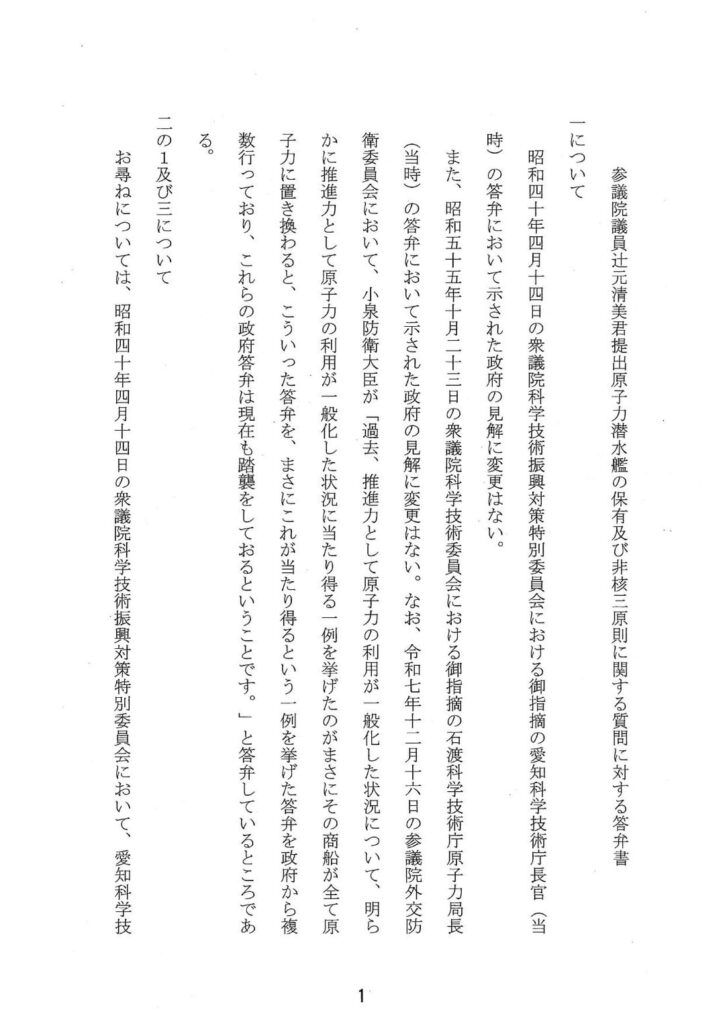 参議院議員辻元清美君提出原子力潜水艦の保有及び非核三原則に関する質問に対する答弁書
一について
昭和四十年四月十四日の衆議院科学技術振興対策特別委員会における御指摘の愛知科学技術庁長官（当
時）の答弁において示された政府の見解に変更はない。
また、昭和五十五年十月二十三日の衆議院科学技術委員会における御指摘の石渡科学技術庁原子力局長
（当時）の答弁において示された政府の見解に変更はない。なお、令和七年十二月十六日の参議院外交防
衛委員会において、小泉防衛大臣が「過去、推進力として原子力の利用が一般化した状況について、明ら
かに推進力として原子力の利用が一般化した状況に当たり得る一例を挙げたのがまさにその商船が全て原
子力に置き換わると、こういった答弁を、まさにこれが当たり得るという一例を挙げた答弁を政府から複
数行っており、これらの政府答弁は現在も踏襲をしておるということです。」と答弁しているところであ
る。
二の１及び三について
お尋ねについては、昭和四十年四月十四日の衆議院科学技術振興対策特別委員会において、愛知科学技
1